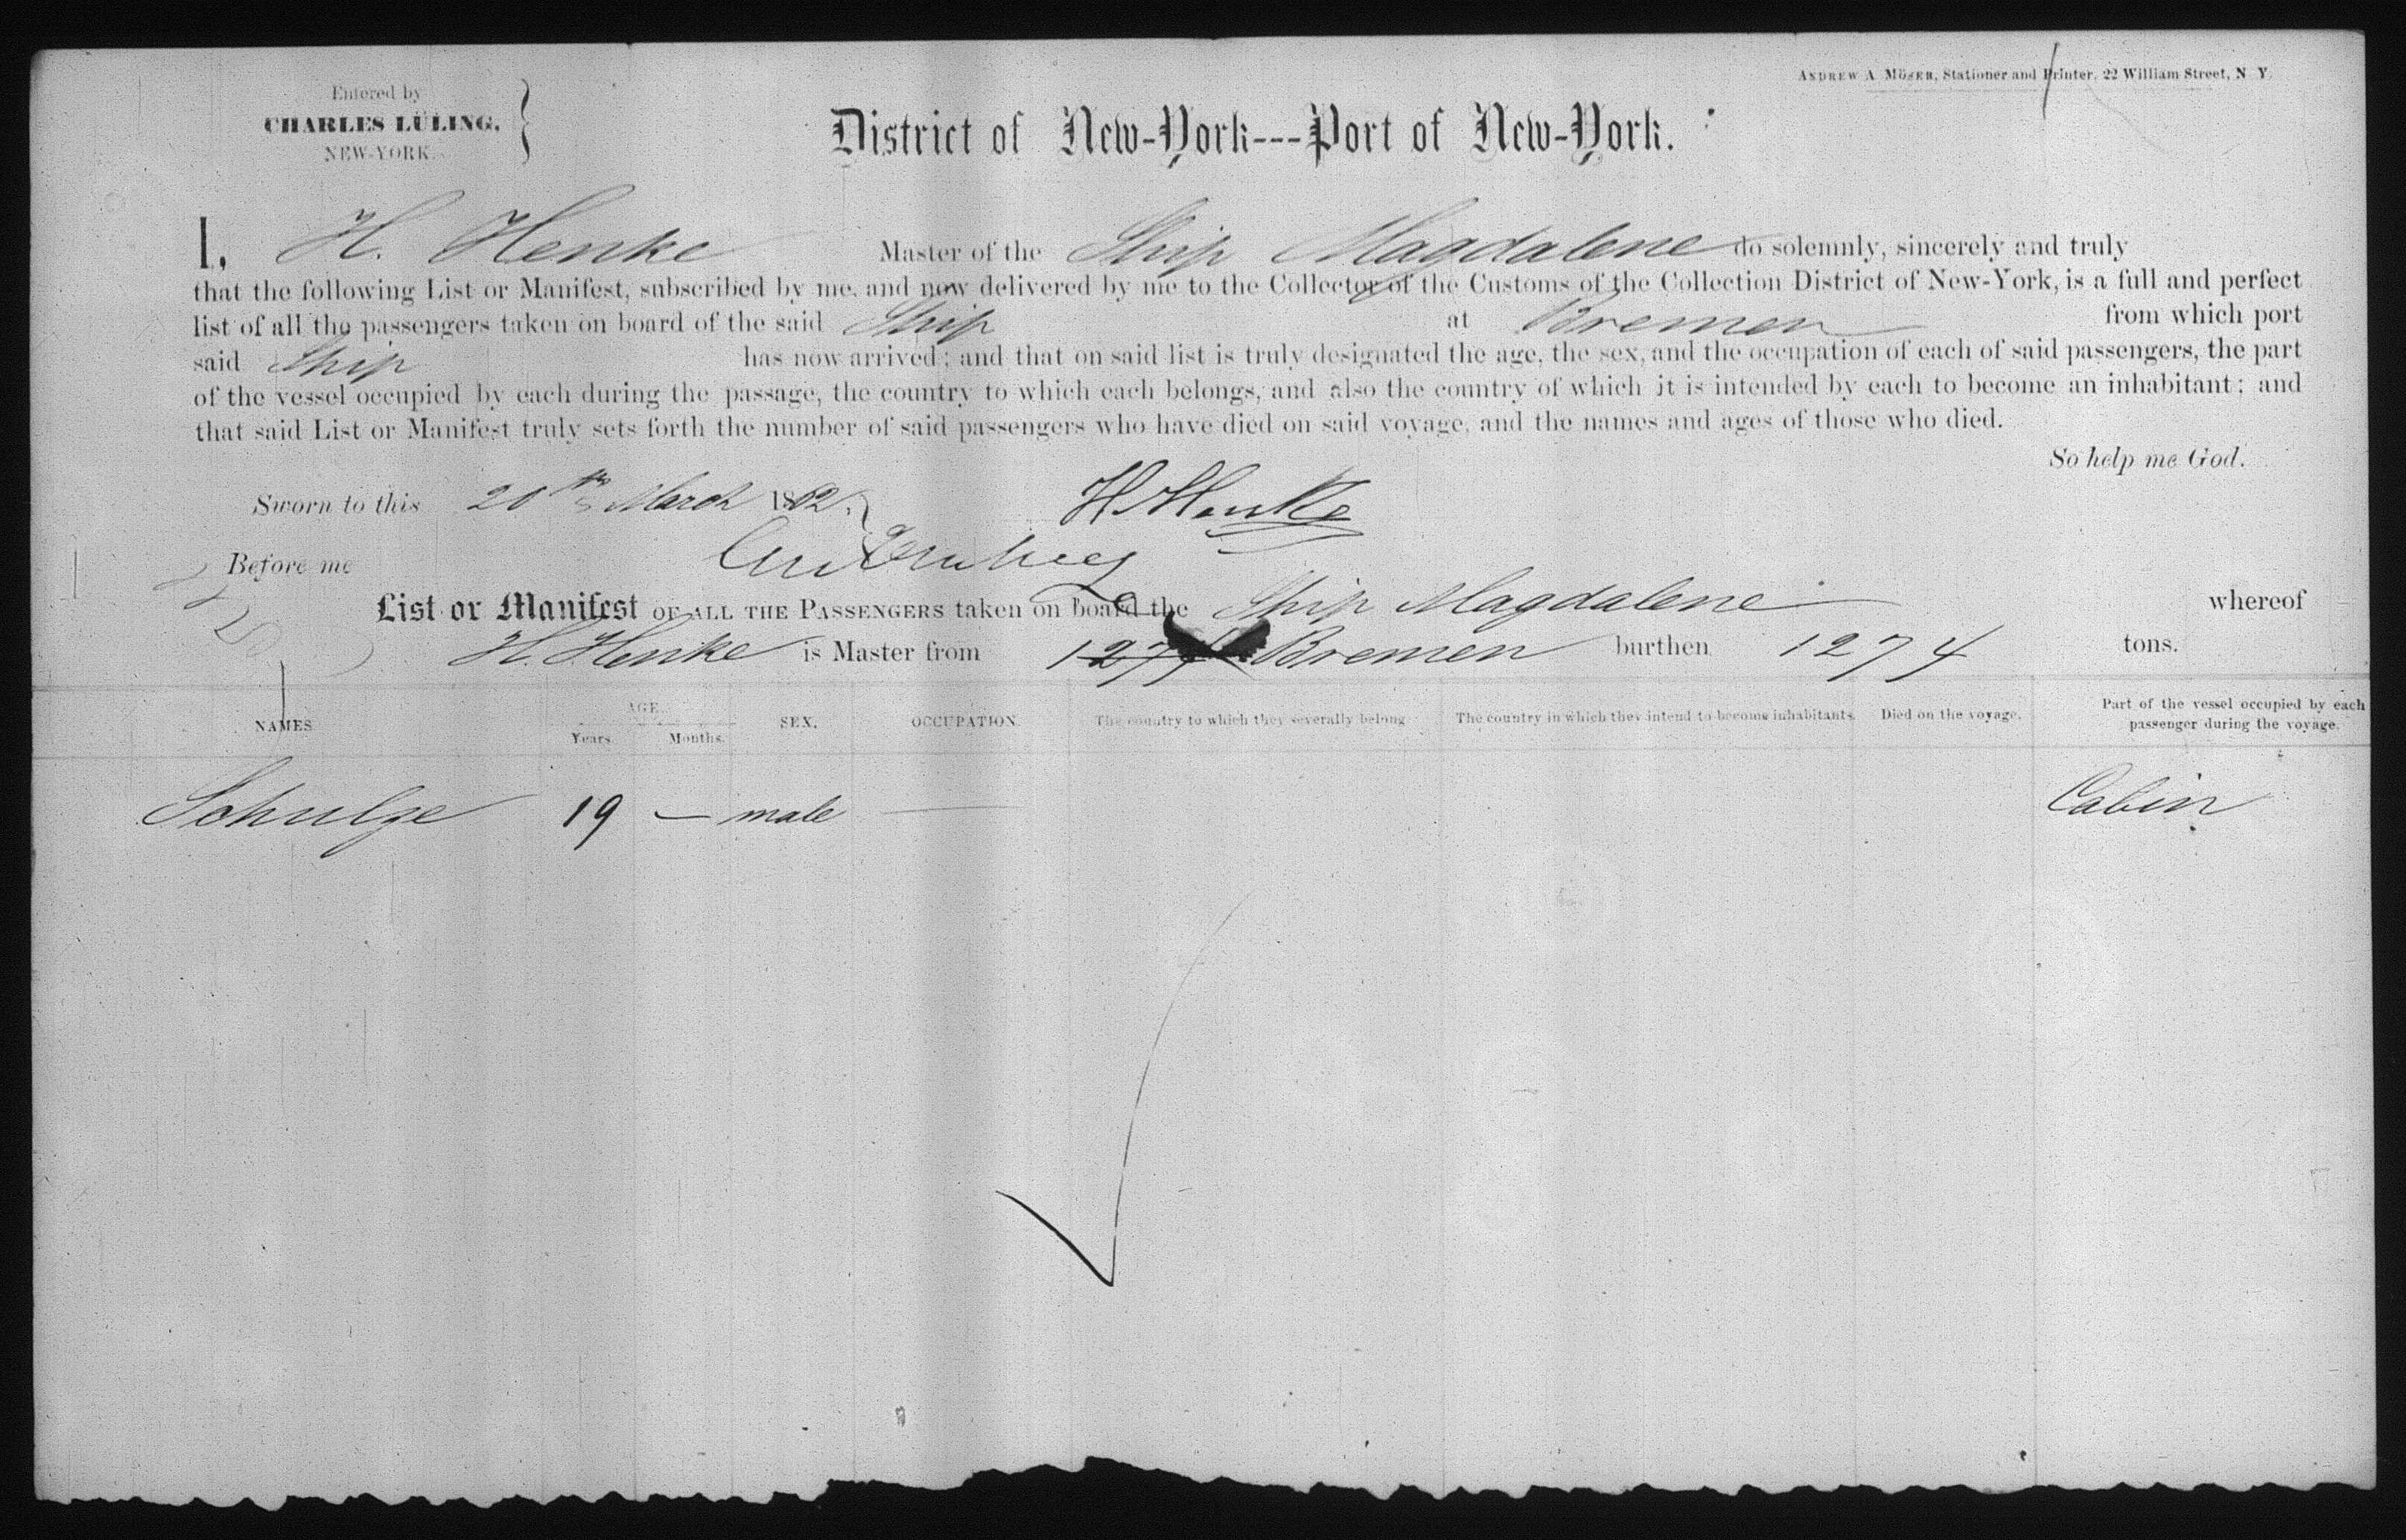 ANDREW A. MÖSER, Stationer and Printer, 22 William Street, N. Y.
Entered by
CHARLES LULING,
NEW-YORK.
District of New-York---Port of New-York.
I, H. Henke Master of the Ship Magdalene do solemnly, sincerely and truly
that the following List or Manifest, subscribed by me, and now delivered by me to the Collector of the Customs of the Collection District of New-York, is a full and perfect
list of all the passengers taken on board of the said Ship at Bremen from which port
said Ship has now arrived; and that on said list is truly designated the age, the sex, and the occupation of each of said passengers, the part
of the vessel occupied by each during the passage, the country to which each belongs, and also the country of which it is intended by each to become an inhabitant; and
that said List or Manifest truly sets forth the number of said passengers who have died on said voyage, and the names and ages of those who died.
So help me God.
Sworn to this 20th March 1862. H Henke
Before me
List or Manifest OF ALL THE PASSENGERS taken on board the Ship Magdalene whereof
H. Henke is Master from 1274 Bremen burthen 1274 tons.
NAMES AGE. Years. Months. SEX. OCCUPATION The country to which they severally belong. The country in which they intend to become inhabitants. Died on the voyage. Part of the vessel occupied by each passenger during the voyage.
Schulze 19 — male — Cabin